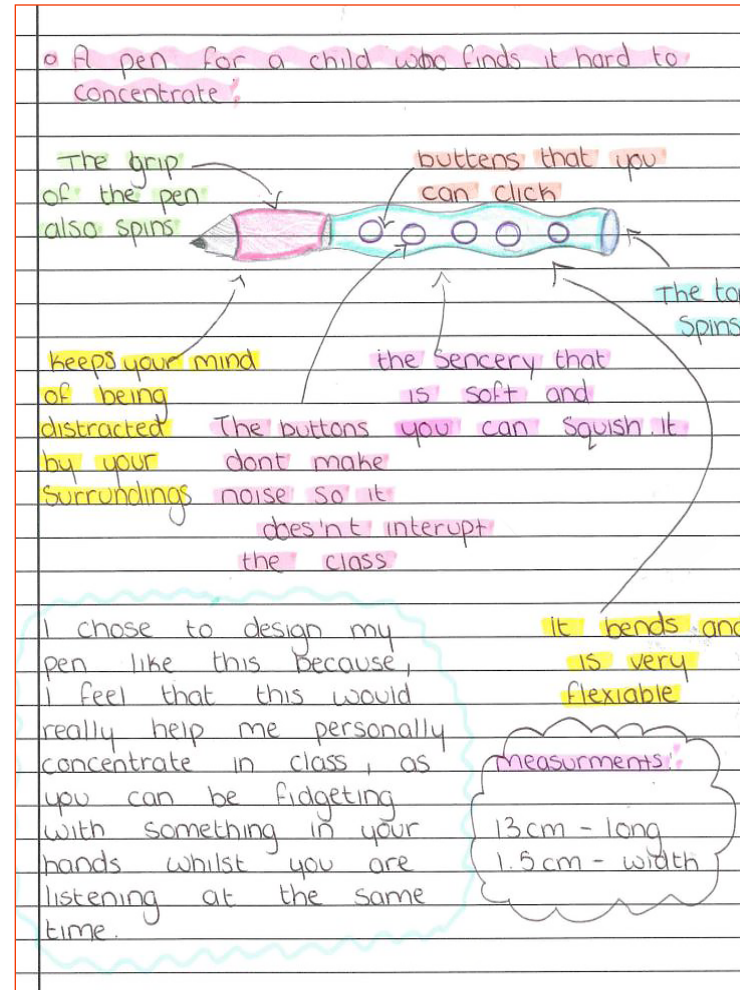 A pen for a child who finds it hard to
concentrate:
The grip
of the pen
also spins
buttens that you
can click
The top
spins
keeps your mind
of being
distracted
by your
surrundings
The buttons
dont make
noise so it
does'nt interupt
the class
the sencery that
is soft and
you can squish it
it bends and
is very
flexiable
I chose to design my
pen like this because,
I feel that this would
really help me personally
concentrate in class, as
you can be fidgeting
with something in your
hands whilst you are
listening at the same
time.
measurments:
13cm - long
1.5cm - width